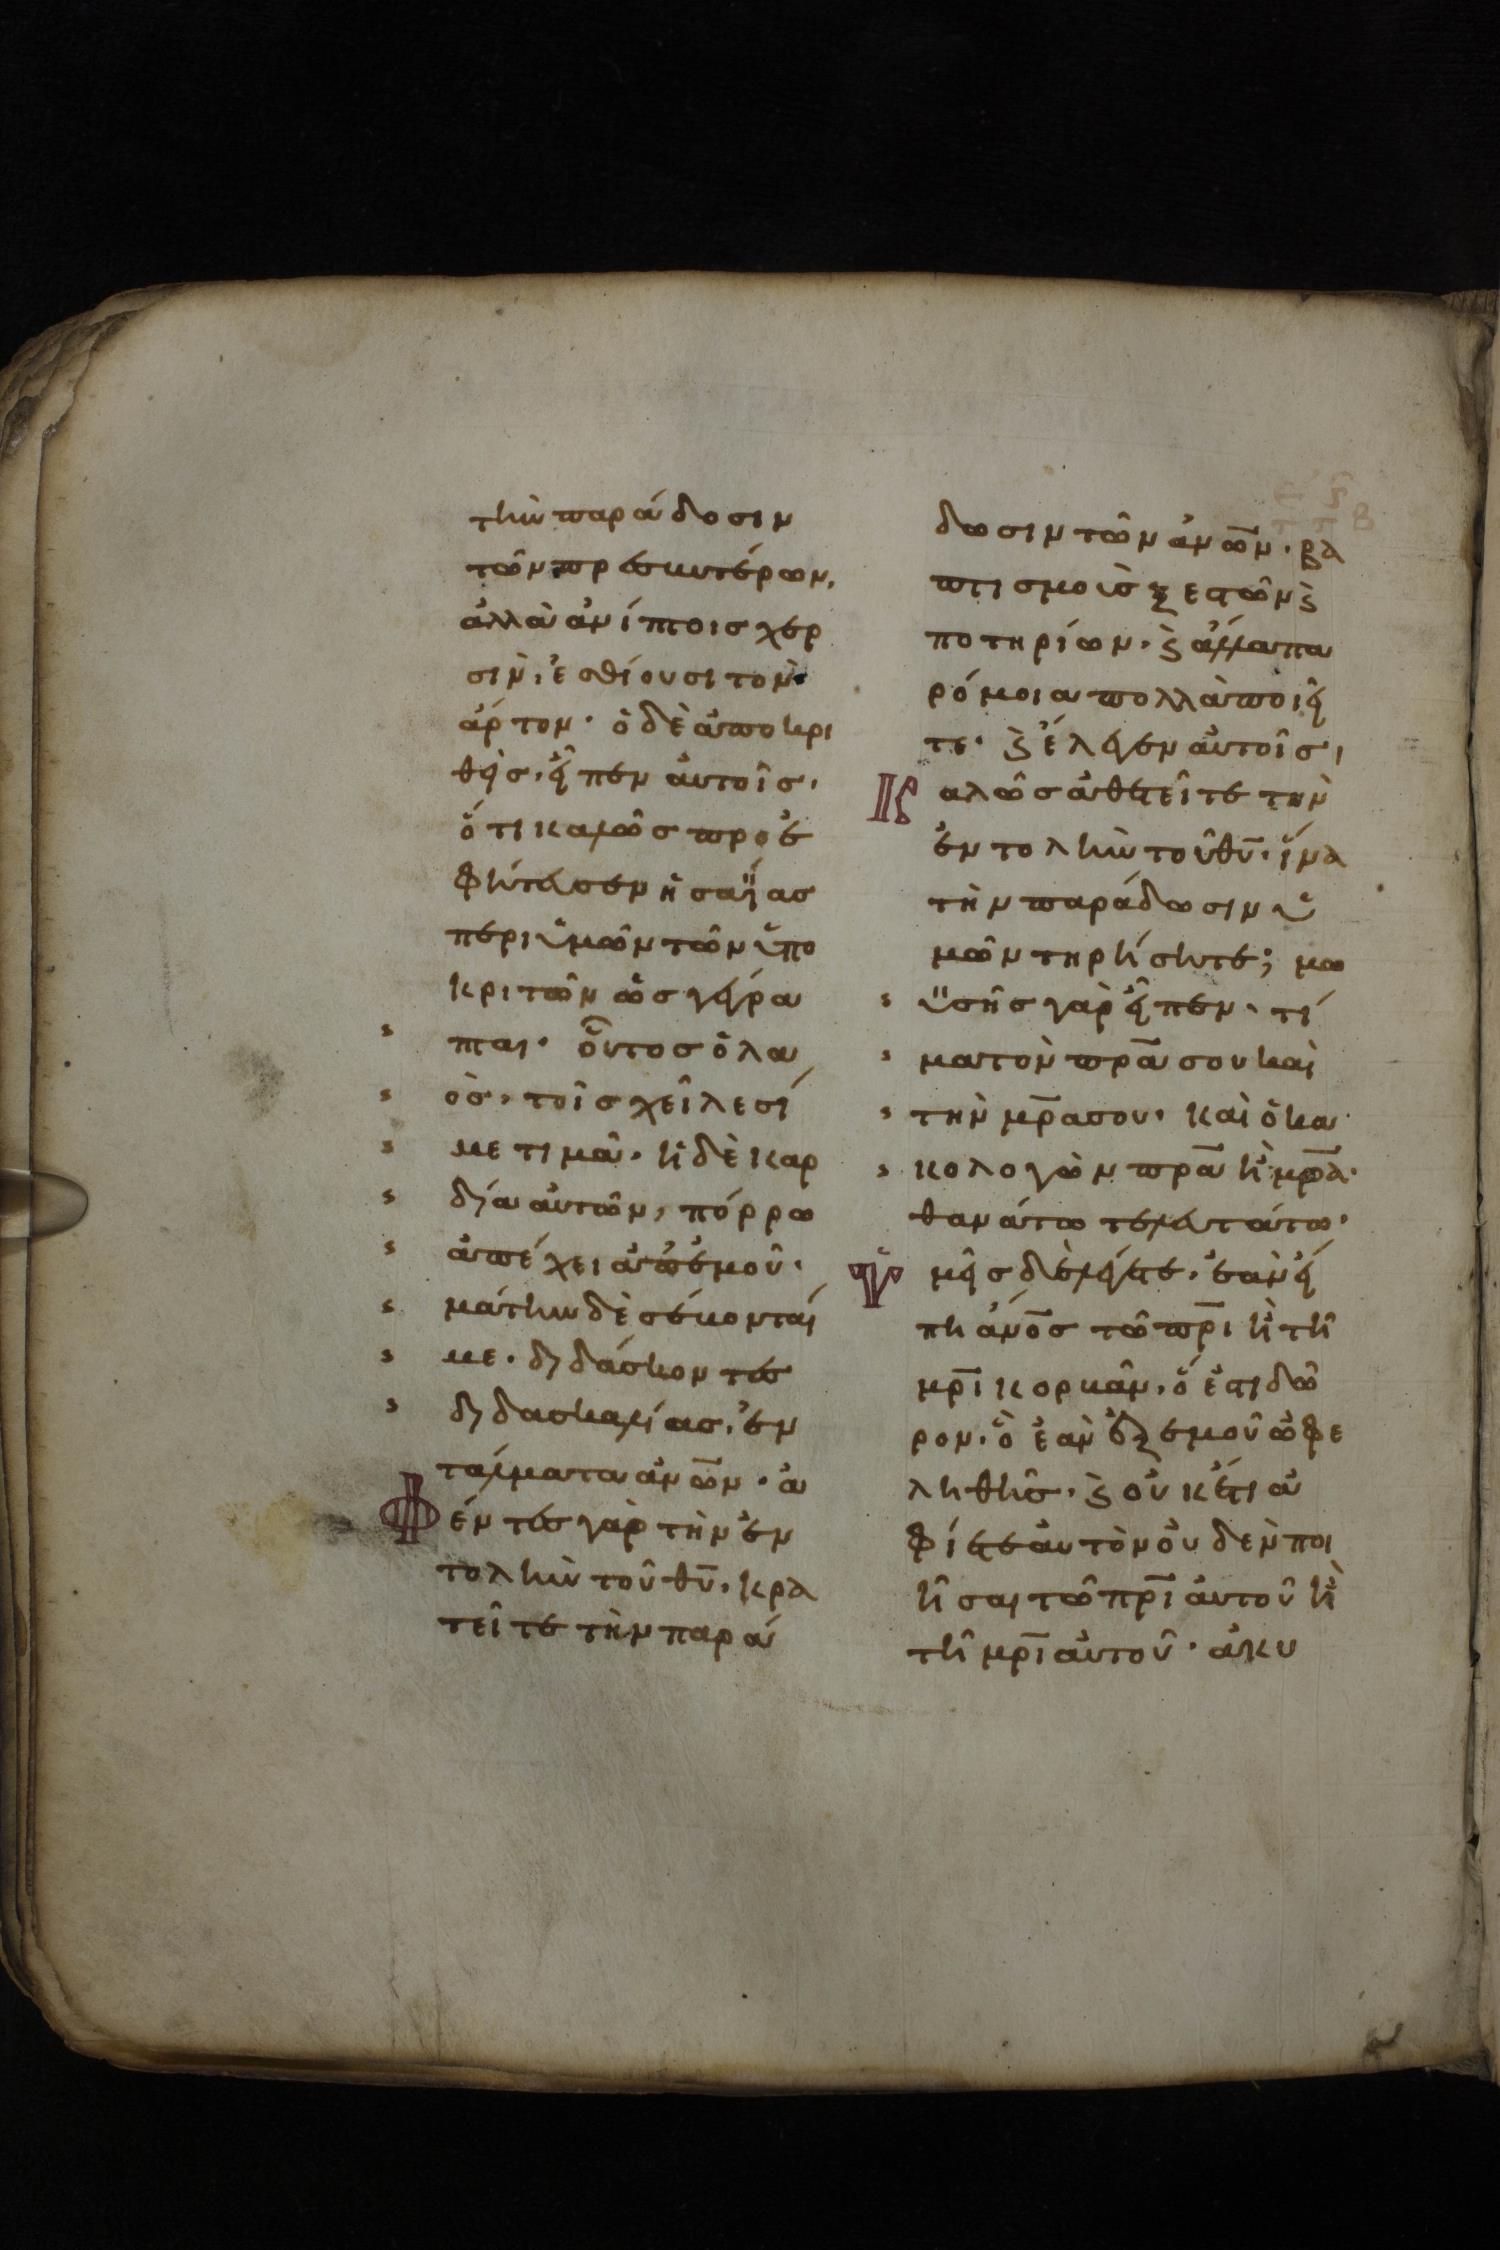 τὴν παράδοσιν
τῶν πρεσβυτέρων,
ἀλλὰ ἀνίπτοισ χερ
σὶν, ἐσθίουσι τὸν
ἄρτον· ὁ δὲ ἀποκρι
θεὶσ, εἶπεν αὐτοῖσ·
ὅτι καλῶσ προε
φήτευσεν ἠσαΐασ
περι ὑμῶν τῶν ὑπο
κριτῶν ὡσ γέγρα
πται· οὗτοσ ὁ λα
ὸσ, τοῖσ χεῖλεσί
με τιμᾶ· ἡ δὲ καρ
δία αὐτῶν, πόρρω
ἀπέχει ἀπ' ἐμοῦ·
μάτην δὲ σέβονταί
με· διδάσκοντεσ
διδασκαλίασ, ἐν
τάλματα ἀν̅ω̅ν· ἀ
Φέντεσ γὰρ τὴν ἐν
τολὴν τοῦ θ̅υ̅, κρα
τεῖτε τὴν παρά
δωσιν τῶν ἀν̅ω̅ν· βα
πτισμοὺσ ξεστῶν ϗ̀
ποτηρίων· ϗ̀ ἄλλα πα
ρόμοια πολλὰ ποιεῖ
τε· ϗ̀ ἔλεγεν αὐτοῖσ,
Καλῶσ ἀθετεῖτε τὴν
ἐντολὴν τοῦ θ̅υ̅· ἵνα
τὴν παράδωσιν ὑ
μῶν τηρήσητε; μω
ϋσῆσ γὰρ εἶπεν· τί
μα τὸν π̅ρ̅α̅ σου καὶ
τὴν μ̅ρ̅α̅ σου· καὶ ὁ κα
κολογὼν π̅ρ̅α̅ ἢ μ̅ρ̅α̅·
θανάτω τελευτάτω·
Ὑμεῖσ δὲ λέγετε, ἐὰν εἴ
πη ἀν̅ο̅σ τῶ π̅ρ̅ι̅ ἢ τῆ
μ̅ρ̅ι̅ κορβᾶν, ὅ ἐστι δῶ
ρον, ὃ ἐὰν ἐξ ἐμοῦ ὠφε
ληθῆσ· ϗ̀ οὐκέτι ἀ
φίετε αὐτὸν οὐδὲν ποι
ῆσαι τῶ π̅ρ̅ι̅ αὐτοῦ ἢ
τῆ μ̅ρ̅ι̅ αὐτοῦ· ἀκυ